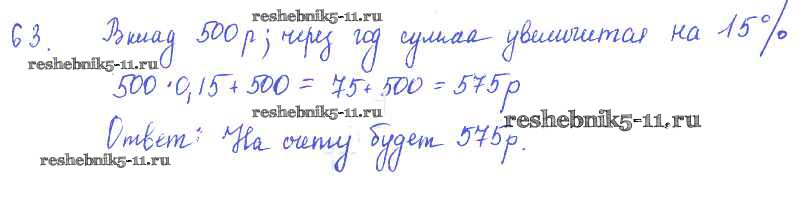 reshebnik5-11.ru
63. Вклад 500р; через год сумма увеличится на 15%
reshebnik5-11.ru
500·0,15+500 = 75+500 = 575р
reshebnik5-11.ru
reshebnik5-11.ru
Ответ: На счету будет 575р.
reshebnik5-11.ru